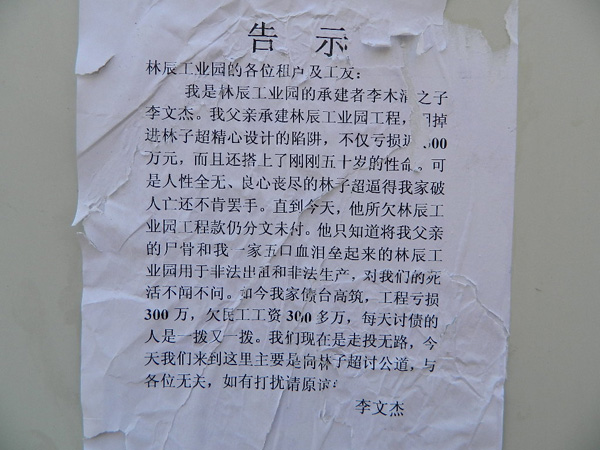 告 示
林辰工业园的各位租户及工友：
我是林辰工业园的承建者李木 之子
李文杰。我父亲承建林辰工业园工程， 掉
进林子超精心设计的陷阱，不仅亏损 00
万元，而且还搭上了刚刚五十岁的性命。可
是人性全无、良心丧尽的林子超逼得我家破
人亡还不肯罢手。直到今天，他所欠林辰工
业园工程款仍分文未付。他只知道将我父亲
的尸骨和我一家五口血泪垒起来的林辰工
业园用于非法出租和非法生产，对我们的死
活不闻不问。如今我家债台高筑，工程亏损
300 万，欠民工工资 300 多万，每天讨债的
人是一拨又一拨。我们现在是走投无路，今
天我们来到这里主要是向林子超讨公道，与
各位无关，如有打扰请原谅
李文杰